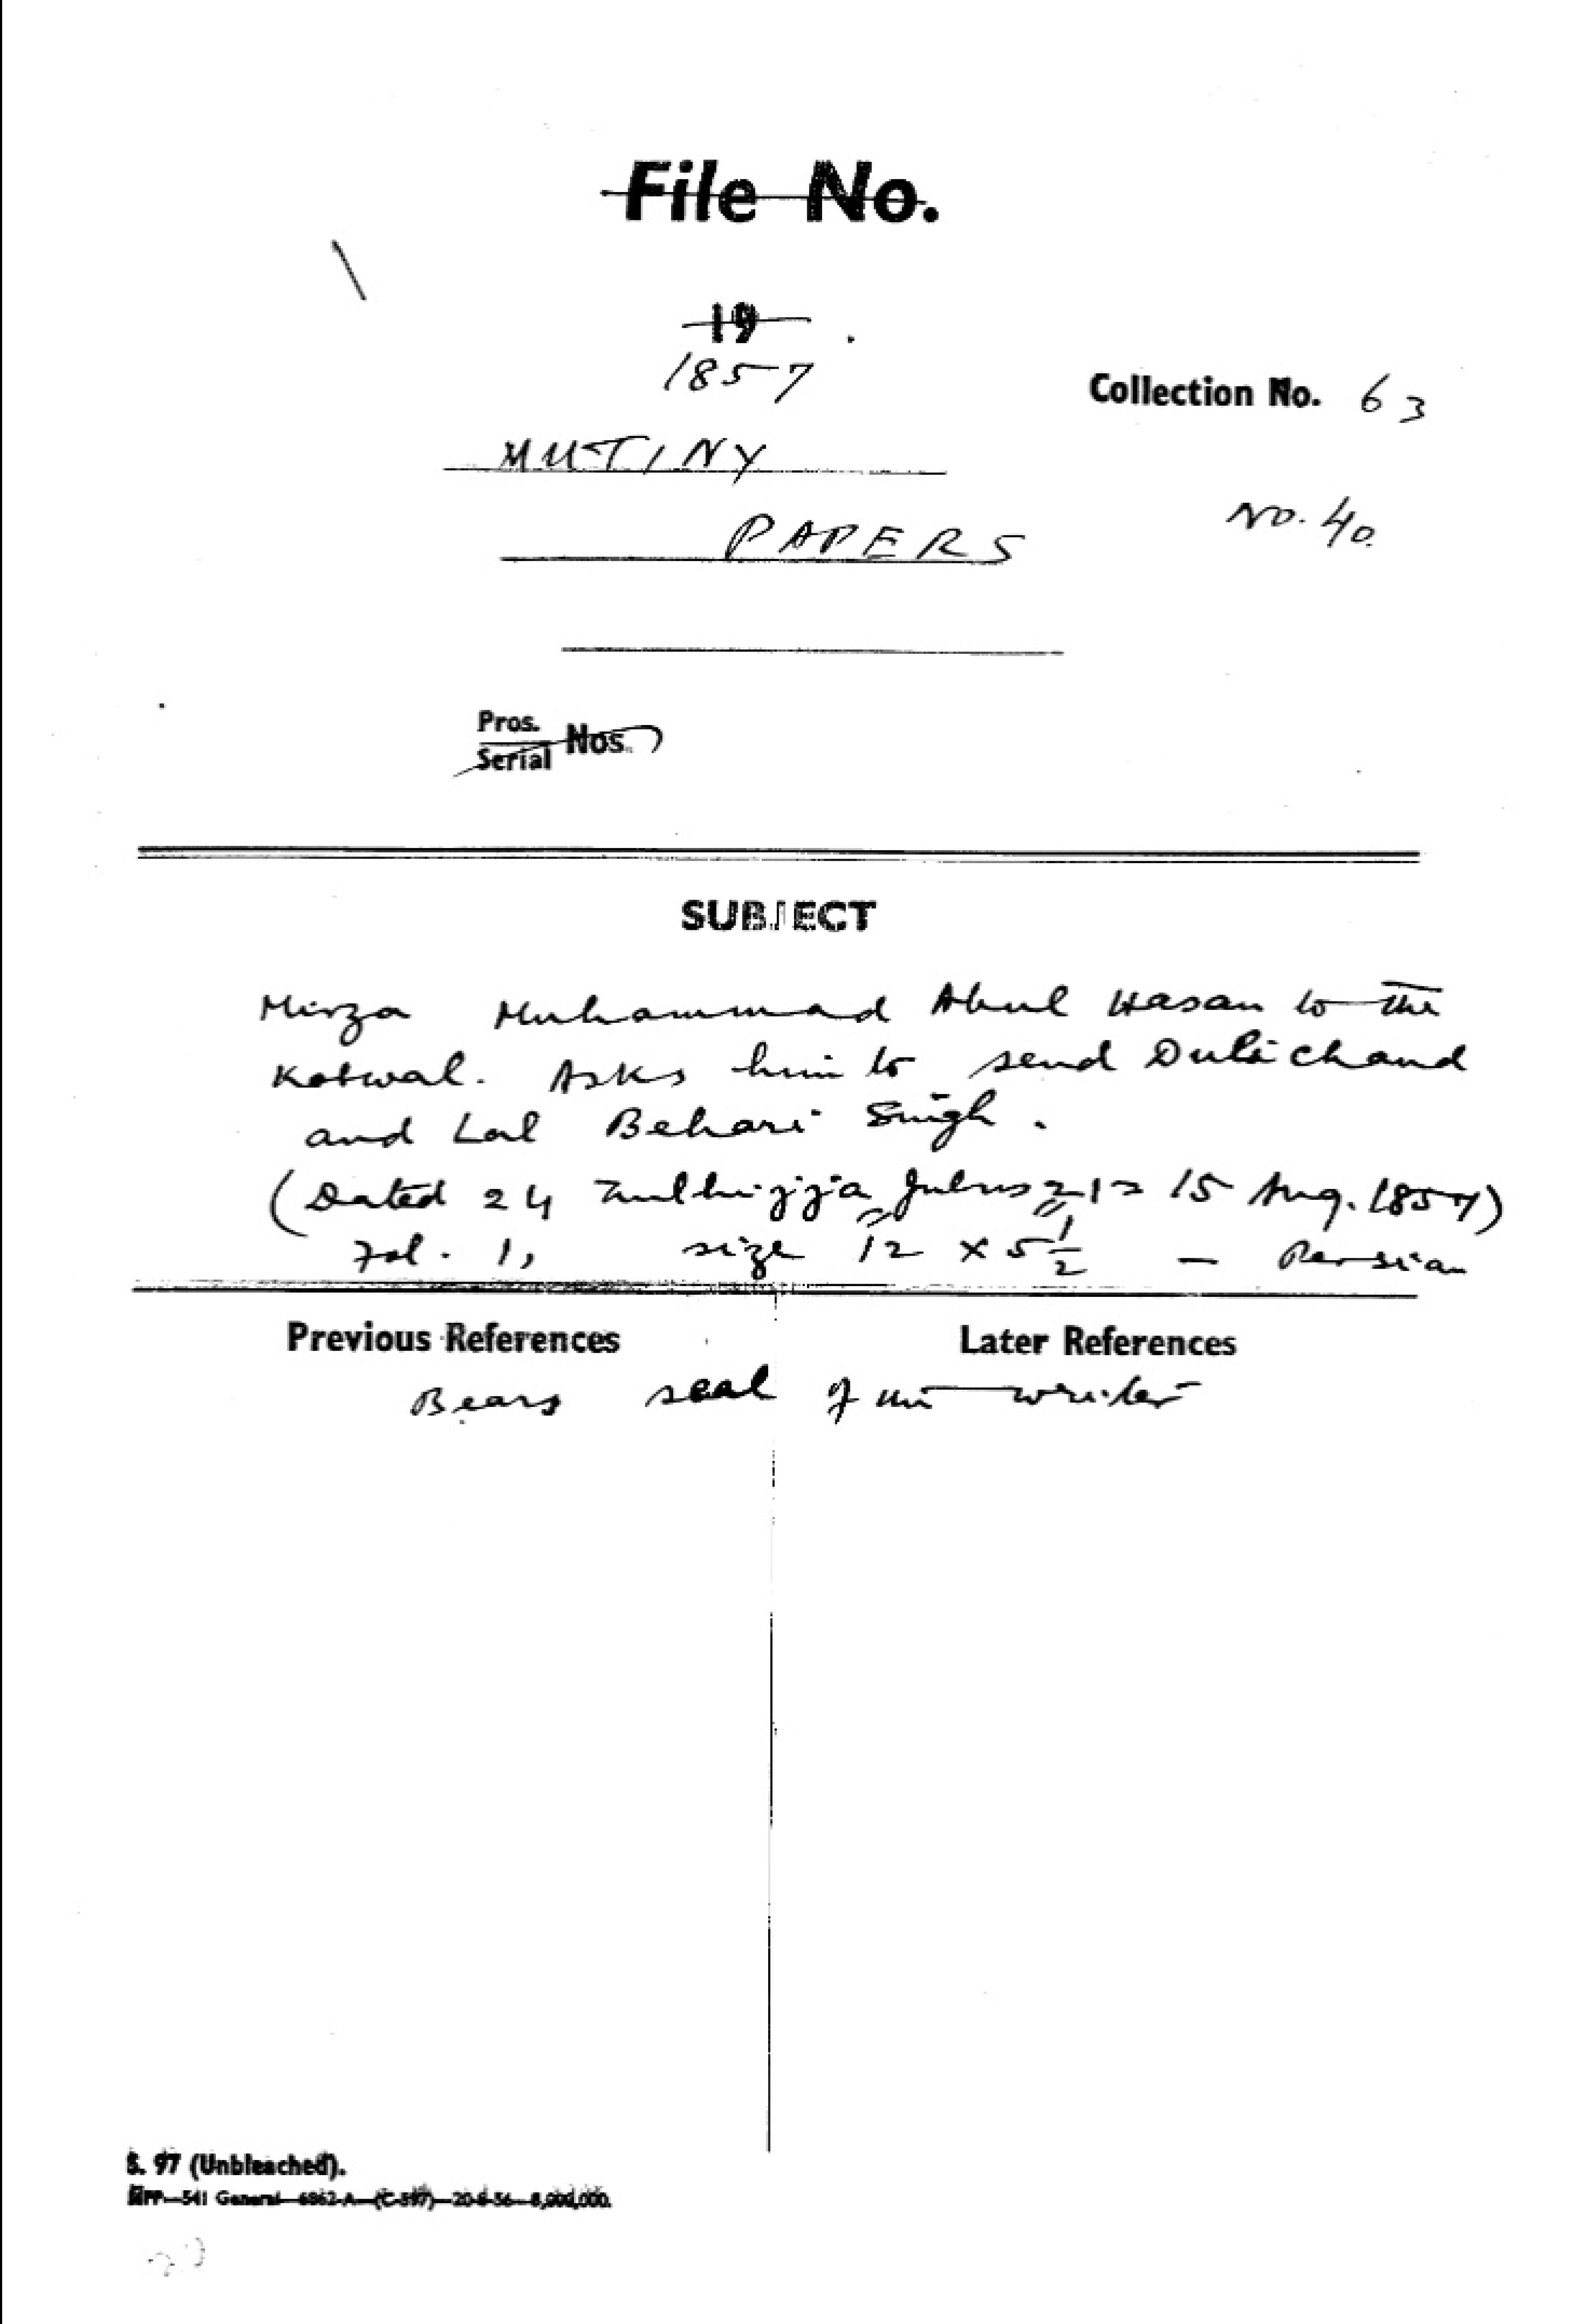 File No.
19
1857
Collection No. 63
MUTINY
No. 40.
PAPERS
Pros.
Serial Nos.
SUBJECT
Mirza Muhammad Abul Hasan to the
Kotwal. Asks him to send Duli chand
and Lal Behari Singh.
(Dated 24 Zulhijja Julus 21 = 15 Aug. 1857)
Fol. 1, size 12" × 5 1/2" — Persian
Previous References
Later References
Bears seal of the writer
S. 97 (Unbleached).
MPP—541 General—6862-A—(C-597)—20-6-56—8,000,000.